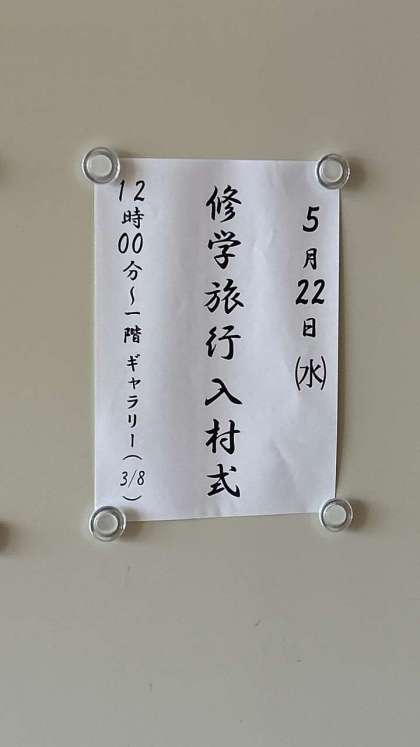 5月22日㈬
修学旅行入村式
12時00分～一階ギャラリー（3/8）